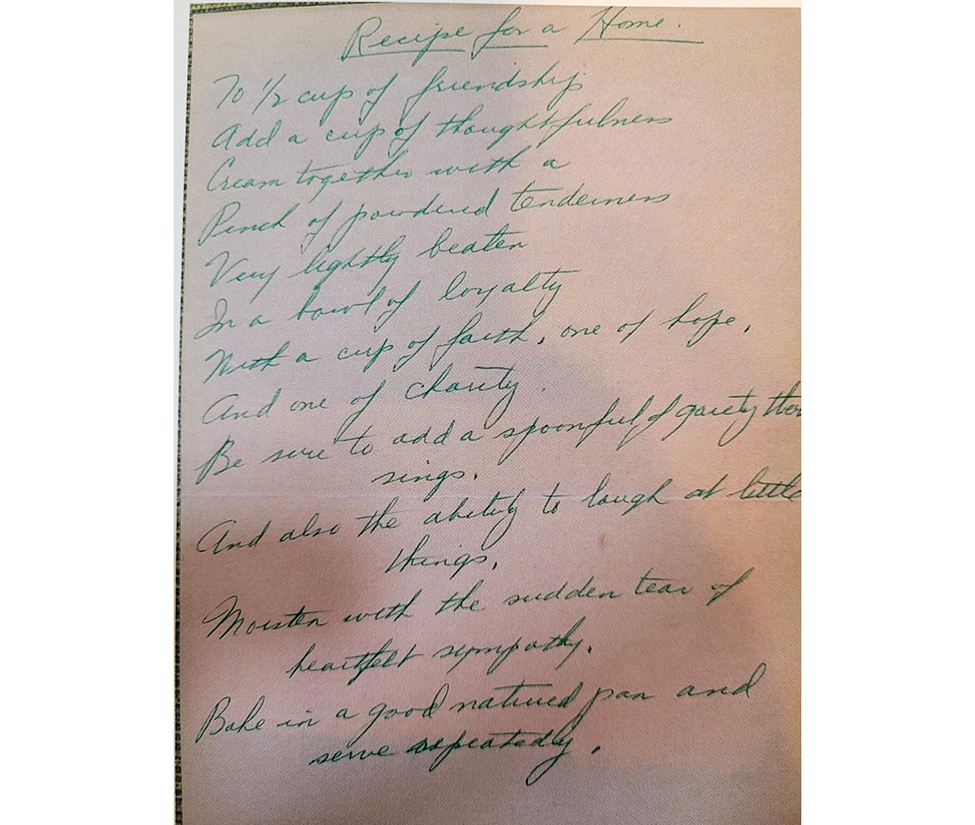 Recipe for a Home.
To 1/2 cup of friendship
Add a cup of thoughtfulness
Cream together with a
Pinch of powdered tenderness
Very lightly beaten
In a bowl of loyalty
With a cup of faith, one of hope,
And one of charity.
Be sure to add a spoonful of gaiety
sings.
And also the ability to laugh at little
things.
Moisten with the sudden tear of
heartfelt sympathy.
Bake in a good natured pan and
serve repeatedly.